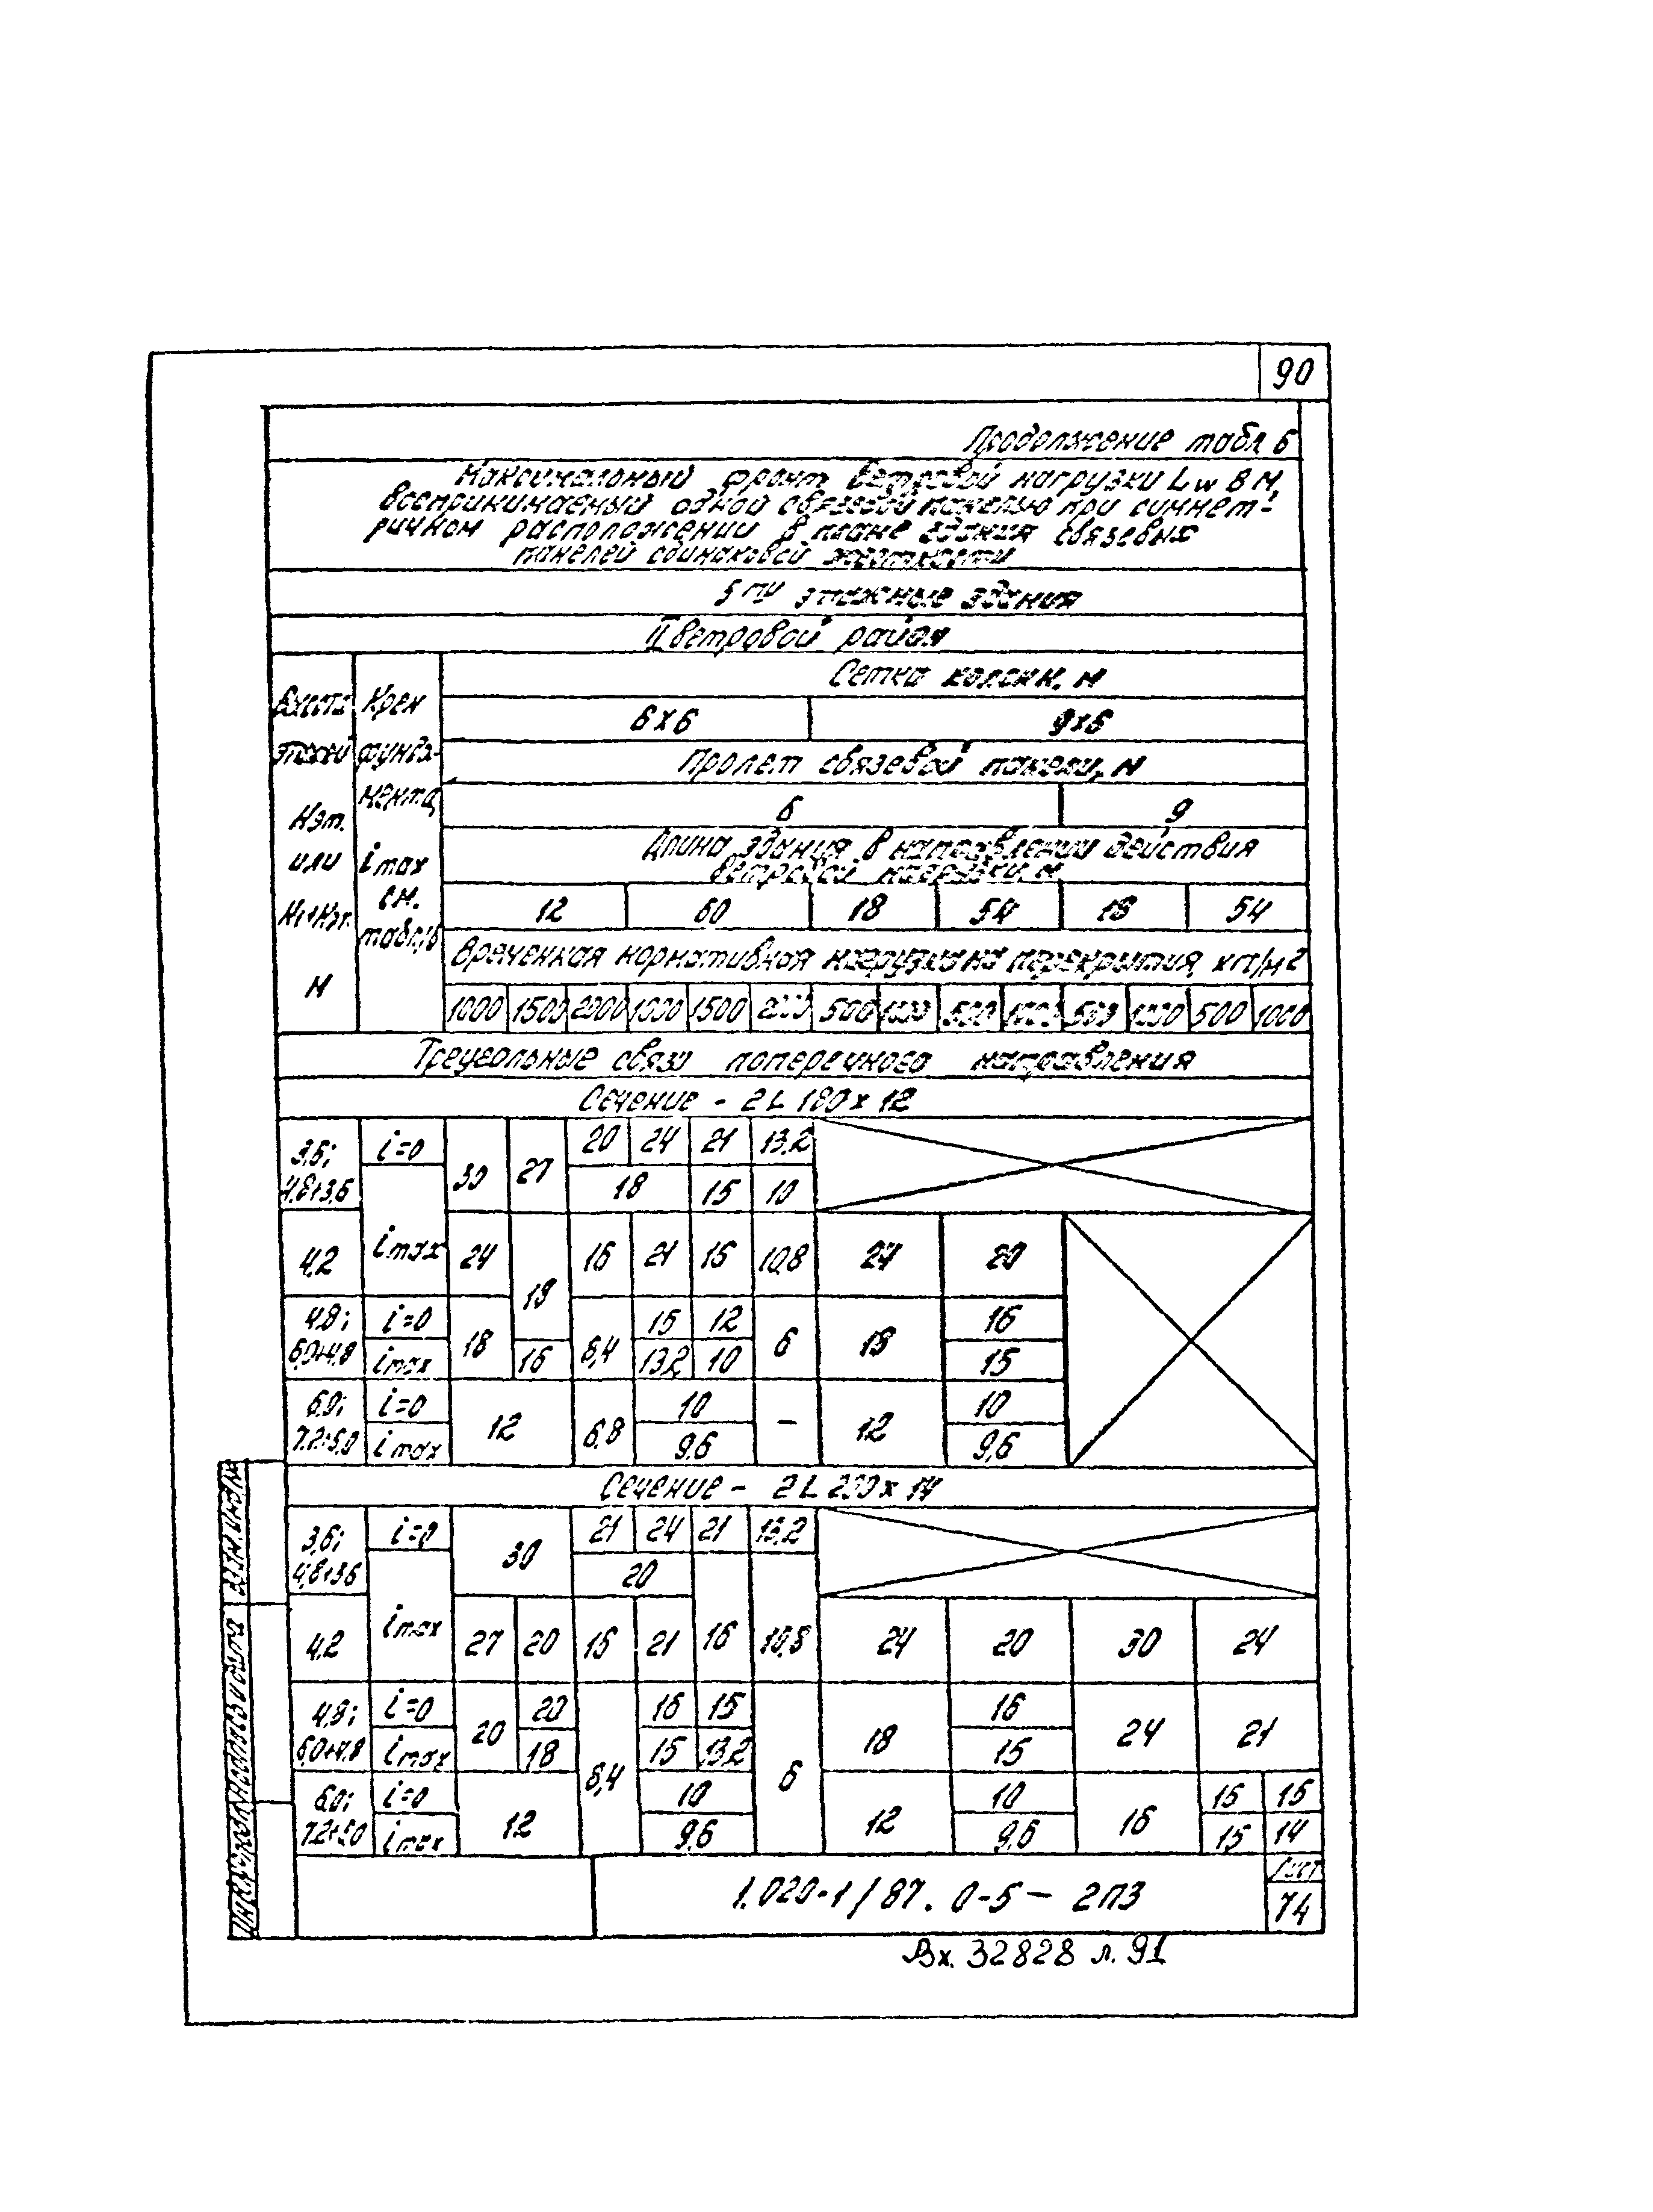 90
Продолжение табл 6
Максимальный фронт ветровой нагрузки Lw в м,
воспринимаемый одной связевой панелью при симмет-
ричном расположении в плане здания связевых
панелей одинаковой жесткости
5ти этажные здания
II ветровой район
Высота
этажей
Нэт.
или
Н1+Нэт.
м
Крен
фунда-
мента,
imax
см.
табл.
Сетка колонн, м
6х6 9х6
Пролет связевой панели, м
6 9
Длина здания в направлении действия
ветровой нагрузки, м
12 60 18 54 18 54
Временная нормативная нагрузка на перекрытия, кг/м2
1000 1500 2000 1000 1500 2000 500 1000 500 1000 500 1000 500 1000
Треугольные связи поперечного направления
Сечение - 2L 180х12
3,6; i=0 30 27 20 24 21 13,2
4,8+3,6 18 15 10
4,2 imax 24 18 16 21 15 10,8 24 20
4,8; i=0 18 8,4 15 12 6 18 16
6,0+4,8 imax 16 13,2 10 15
6,0; i=0 12 6,8 10 - 12 10
7,2+6,0 imax 9,6 9,6
Сечение - 2L 200х14
3,6; i=0 30 21 24 21 13,2
4,8+3,6 20
4,2 imax 27 20 15 21 16 10,8 24 20 30 24
4,8; i=0 20 20 8,4 16 15 6 18 16 24 21
6,0+4,8 imax 18 15 13,2 15
6,0; i=0 12 10 12 10 16 16 15
7,2+6,0 imax 9,6 9,6 15 14
1.020-1/87. 0-5- 2ПЗ
Лист
74
Вх. 32828 л. 91